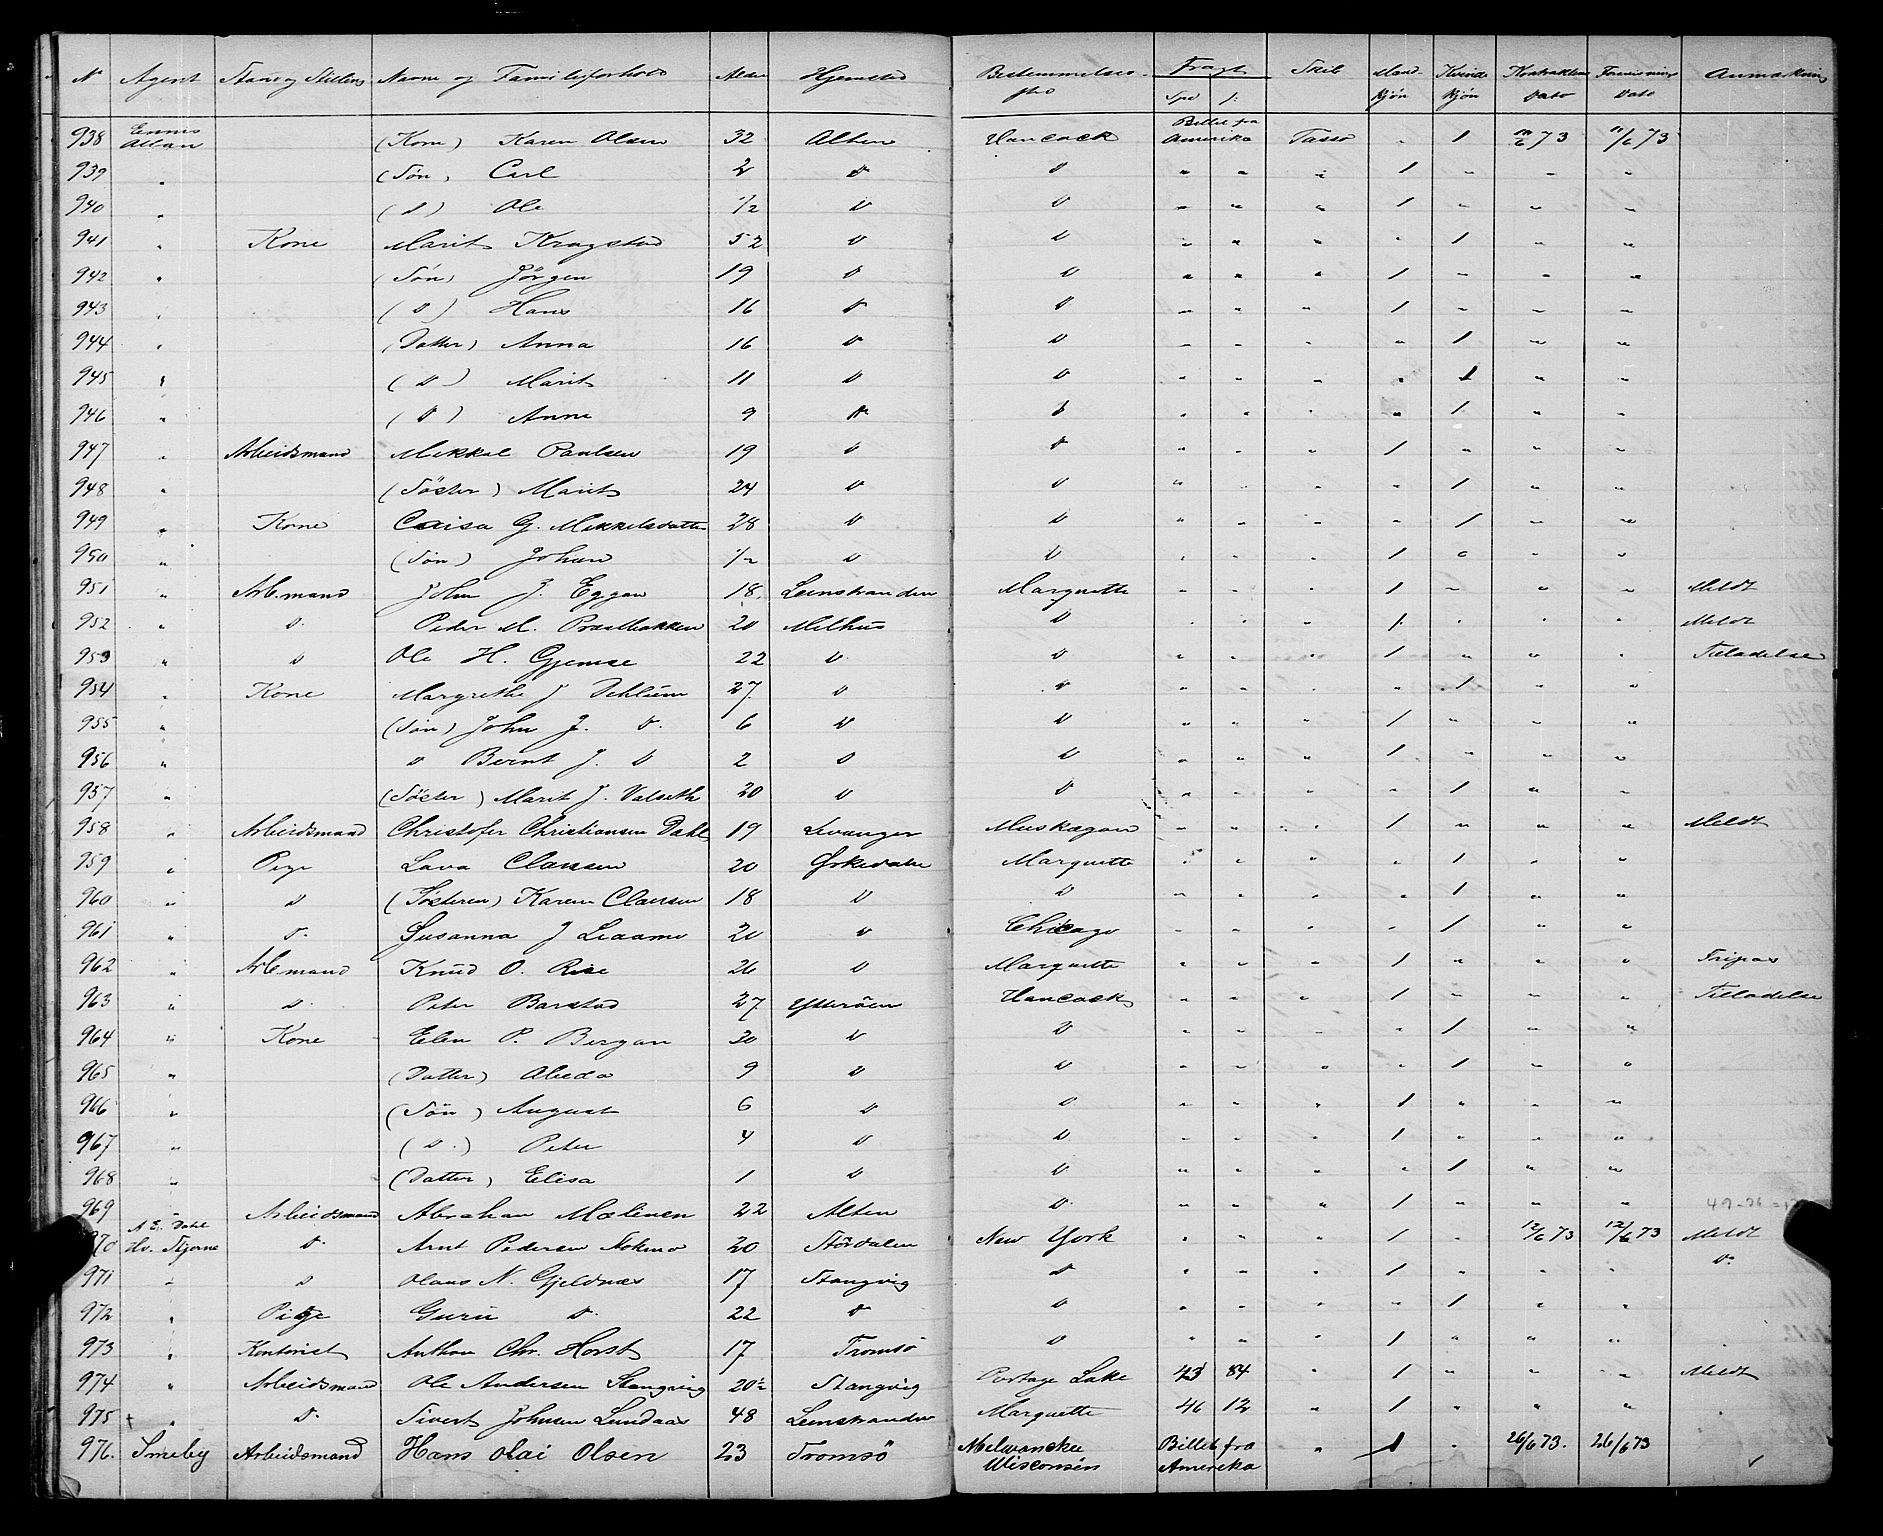 No Agent Stand og Stilling Navne og Familieforhold Alder Hjemsted Bestemmelses- Fragt Skib Mand- Kvinde Kontraktens Forevisnings Anmærkning
sted Spd kjøn kjøn Dato Dato
938 Ennis Allan (Kone) Karen Olsen 32 Alten Hancock Billet fra Amerika Tasso " 1 11/6 73 11/6 73
939 " (Søn) Carl 2 D D " " " 1 " " "
940 " (D) Ole 1/2 D D " " " 1 " " "
941 " Kone Marit Kragstad 52 D D " " " " 1 " "
942 " (Søn) Jørgen 19 D D " " " 1 " " "
943 " (D) Hans 16 D D " " " 1 " " "
944 " (Datter) Anna 16 D D " " " " 1 " "
945 " (D) Marit 11 D D " " " " 1 " "
946 " (D) Anne 9 D D " " " " 1 " "
947 " Arbeidsmand Mikkel Paulsen 19 D D " " " 1 " " "
948 " (Søster) Marit 24 D D " " " " 1 " "
949 " Kone Caisa G. Mikkelsdatter 28 D D " " " " 1 " "
950 " (Søn) Johan 1/2 D D " " " 1 " " "
951 " Arb.mand John J. Eggan 18 Leinstranden Marquette " " " 1 " " " Meldt
952 " D. Peder M. 20 Melhus D " " " 1 " " " Meldt
953 " D Ole H. Gjemse 22 D D " " " 1 " " " Tilladelse
954 " Kone Margrethe J 27 D D " " " " 1 " "
955 " (Søn) John J. D. 6 D D " " " 1 " " "
956 " D Bernt J. D 2 D D " " " 1 " " "
957 " (Søster) Marit J. Valseth 20 D D " " " " 1 " "
958 " Arbeidsmand Christofer Christiansen Dahl 19 Levanger Muskegon " " " 1 " " " Meldt
959 " Pige Lava Clausen 20 Ørkedalen Marquette " " " " 1 " "
960 " D (Søsteren) Karen Clausen 18 D D " " " " 1 " "
961 " D. Susanna J Liaamo 20 D Chicago " " " " 1 " "
962 " Arb.mand Knud O. Rise 26 D Marquette " " " 1 " " " Fripas
963 " D. Peter Barstad 27 Ytterøen Hancock " " " 1 " " " Tilladelse
964 " Kone Elen P. Bergan 30 D D " " " " 1 " "
965 " (Datter) Aleda 9 D D " " " " 1 " "
966 " (Søn) August 6 D D " " " 1 " " "
967 " (D.) Peter 4 D D " " " 1 " " "
968 " (Datter) Elisa 1 D D " " " " 1 " "
969 " Arbeidsmand Abraham Mælinen 22 Alten D. " " " 1 " " "
970 A E. Dahl Hv. Stjerne D. Arnt Pedersen Nokmo 20 Størdalen New York " " " 1 " 12/6 73 12/6 73 Meldt
971 " D Olaus N. Gjeldnæs 17 Stangvig D " " " 1 " " " D.
972 " Pige Guru D. 22 D D " " " " 1 " "
973 " Kontorist Anthon Chr. Horst 17 Tromsø D " " " 1 " " "
974 " Arbeidsmand Ole Andersen Stangvig 20½ Stangvig Portage Lake 43 84 " 1 " " " Meldt
975 + " D. Sivert Johnsen Lundaas 48 Leinstranden Marquette 46 12 " 1 " " "
976. Smeby Arbeidsmand Hans Olai Olsen 23 Tromsø Melwaukee Wisconsin Billet fra Amerika " 1 " 26/6 73. 26/6 73